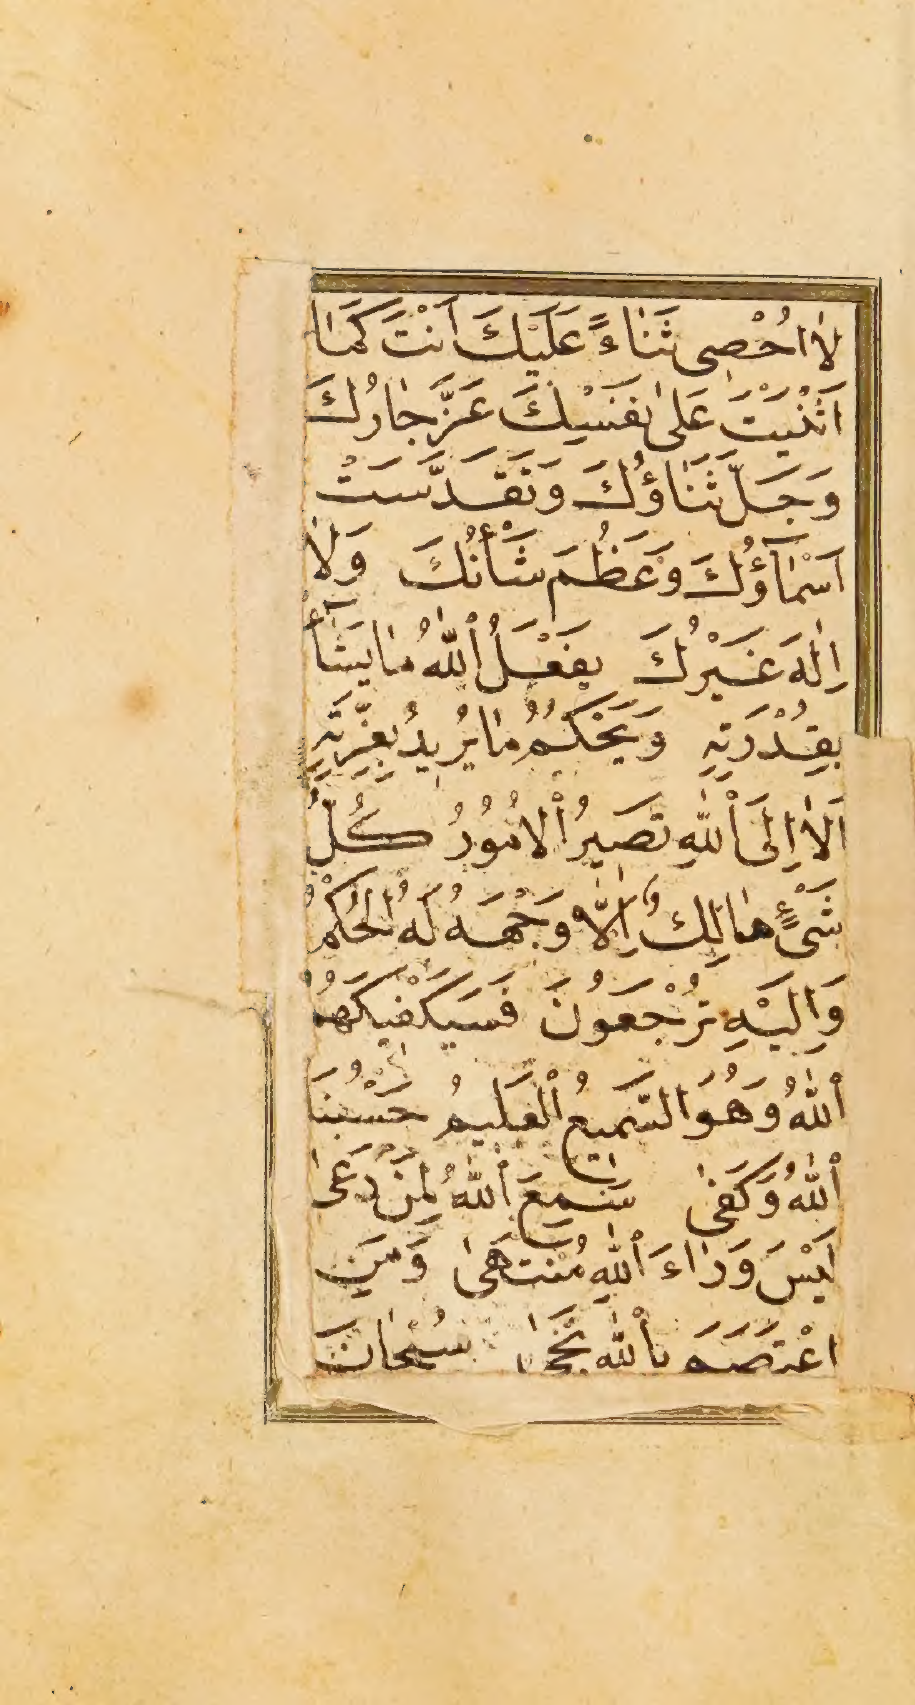 لَا اُحْصِى ثَنَاءً عَلَيْكَ اَنْتَ كَمَا
اَثْنَيْتَ عَلٰى نَفْسِكَ عَزَّ جَارُكَ
وَجَلَّ ثَنَاؤُكَ وَتَقَدَّسَتْ
اَسْمَآؤُكَ وَعَظُمَ شَأْنُكَ وَلَا
اِلٰهَ غَيْرُكَ يَفْعَلُ اللّٰهُ مَا يَشَآءُ
بِقُدْرَتِهِ وَيَحْكُمُ مَا يُرِيدُ بِعِزَّتِهِ
اَلَا اِلَى اللّٰهِ تَصِيرُ الْاُمُوُرُ كُلُّ
شَىْءٍ هَالِكٌ اِلَّا وَجْهَهُ لَهُ الْحُكْمُ
وَاِلَيْهِ تُرْجَعُونَ فَسَيَكْفِيكَهُمُ
اللّٰهُ وَهُوَ السَّمِيعُ الْعَلِيمُ حَسْبُنَا
اللّٰهُ وَكَفٰى سَمِعَ اللّٰهُ لِمَنْ دَعَىٰ
لَيْسَ وَرَاءَ اللّٰهِ مُنْتَهَىٰ وَمَنِ
اعْتَصَمَ بِاللّٰهِ نَجَا سُبْحَانَ